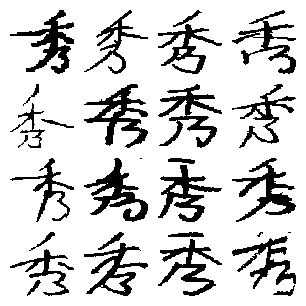 秀秀秀秀
秀秀秀秀
秀秀秀秀
秀秀秀秀